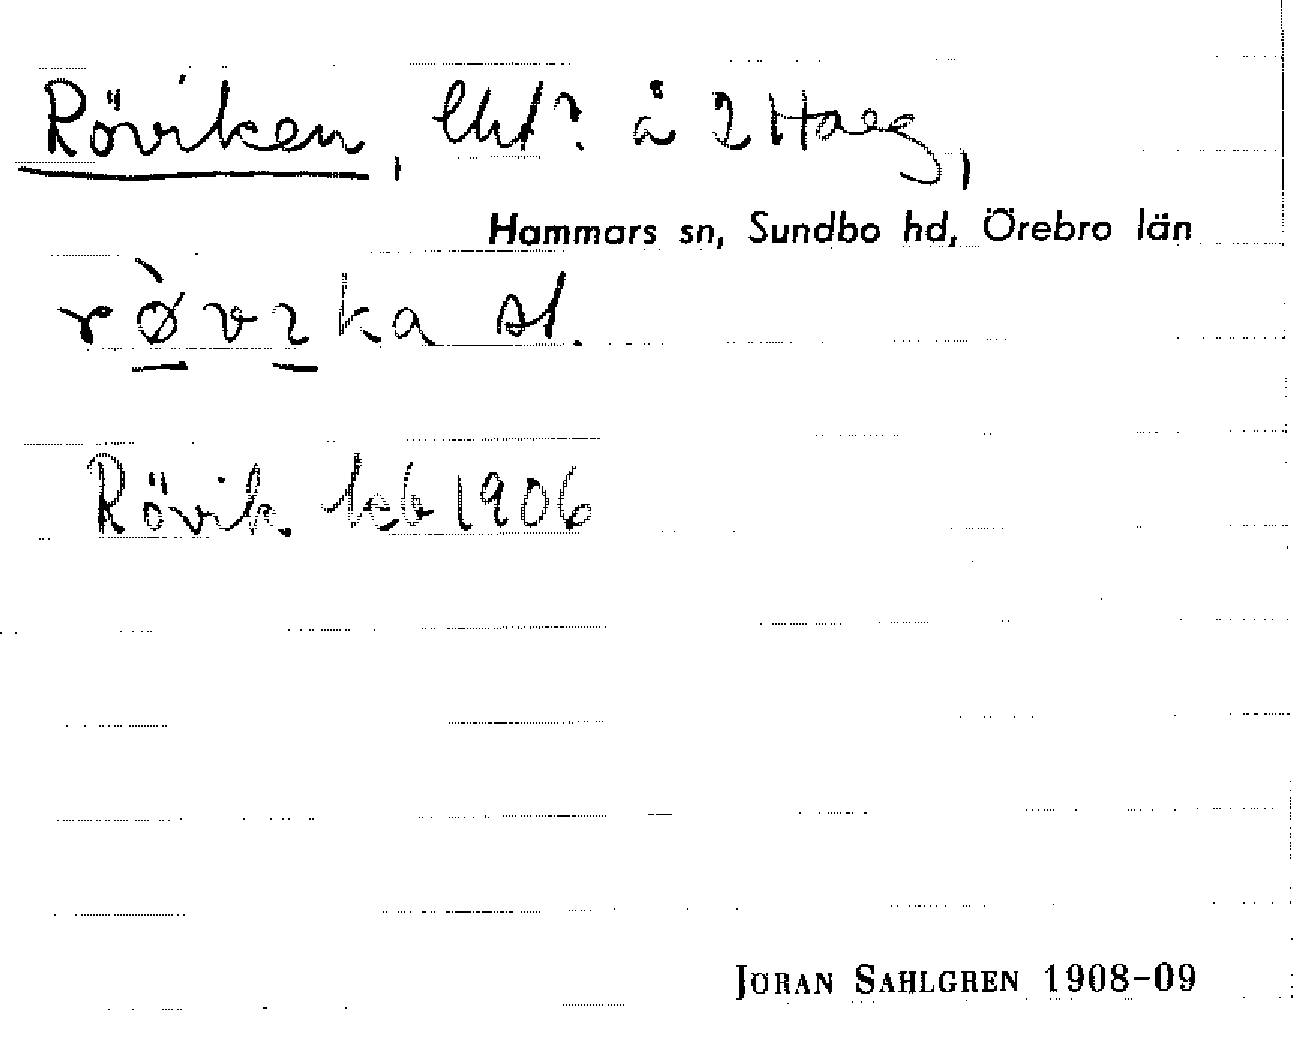 Röviken, lht? å 2 Haeg,
Hammars sn, Sundbo hd, Örebro län
rø̀vıka st.
Rövik. kb 1906
JÖRAN SAHLGREN 1908-09